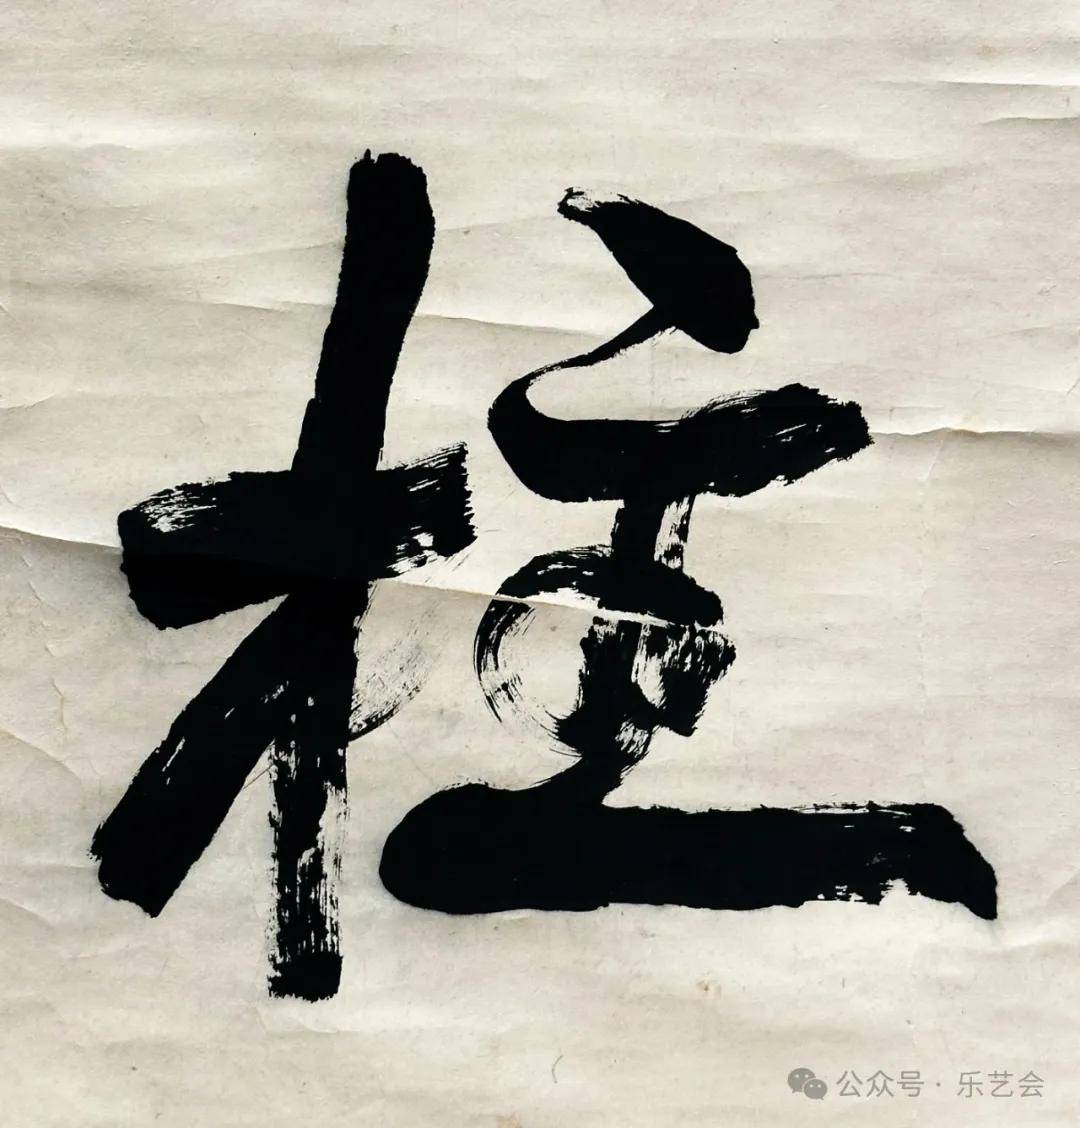 柱
公众号 · 乐艺会